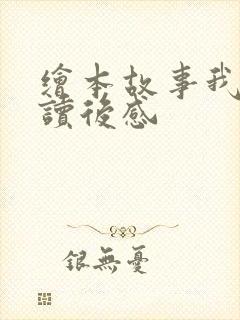 繪本故事我
讀後感
銀無憂